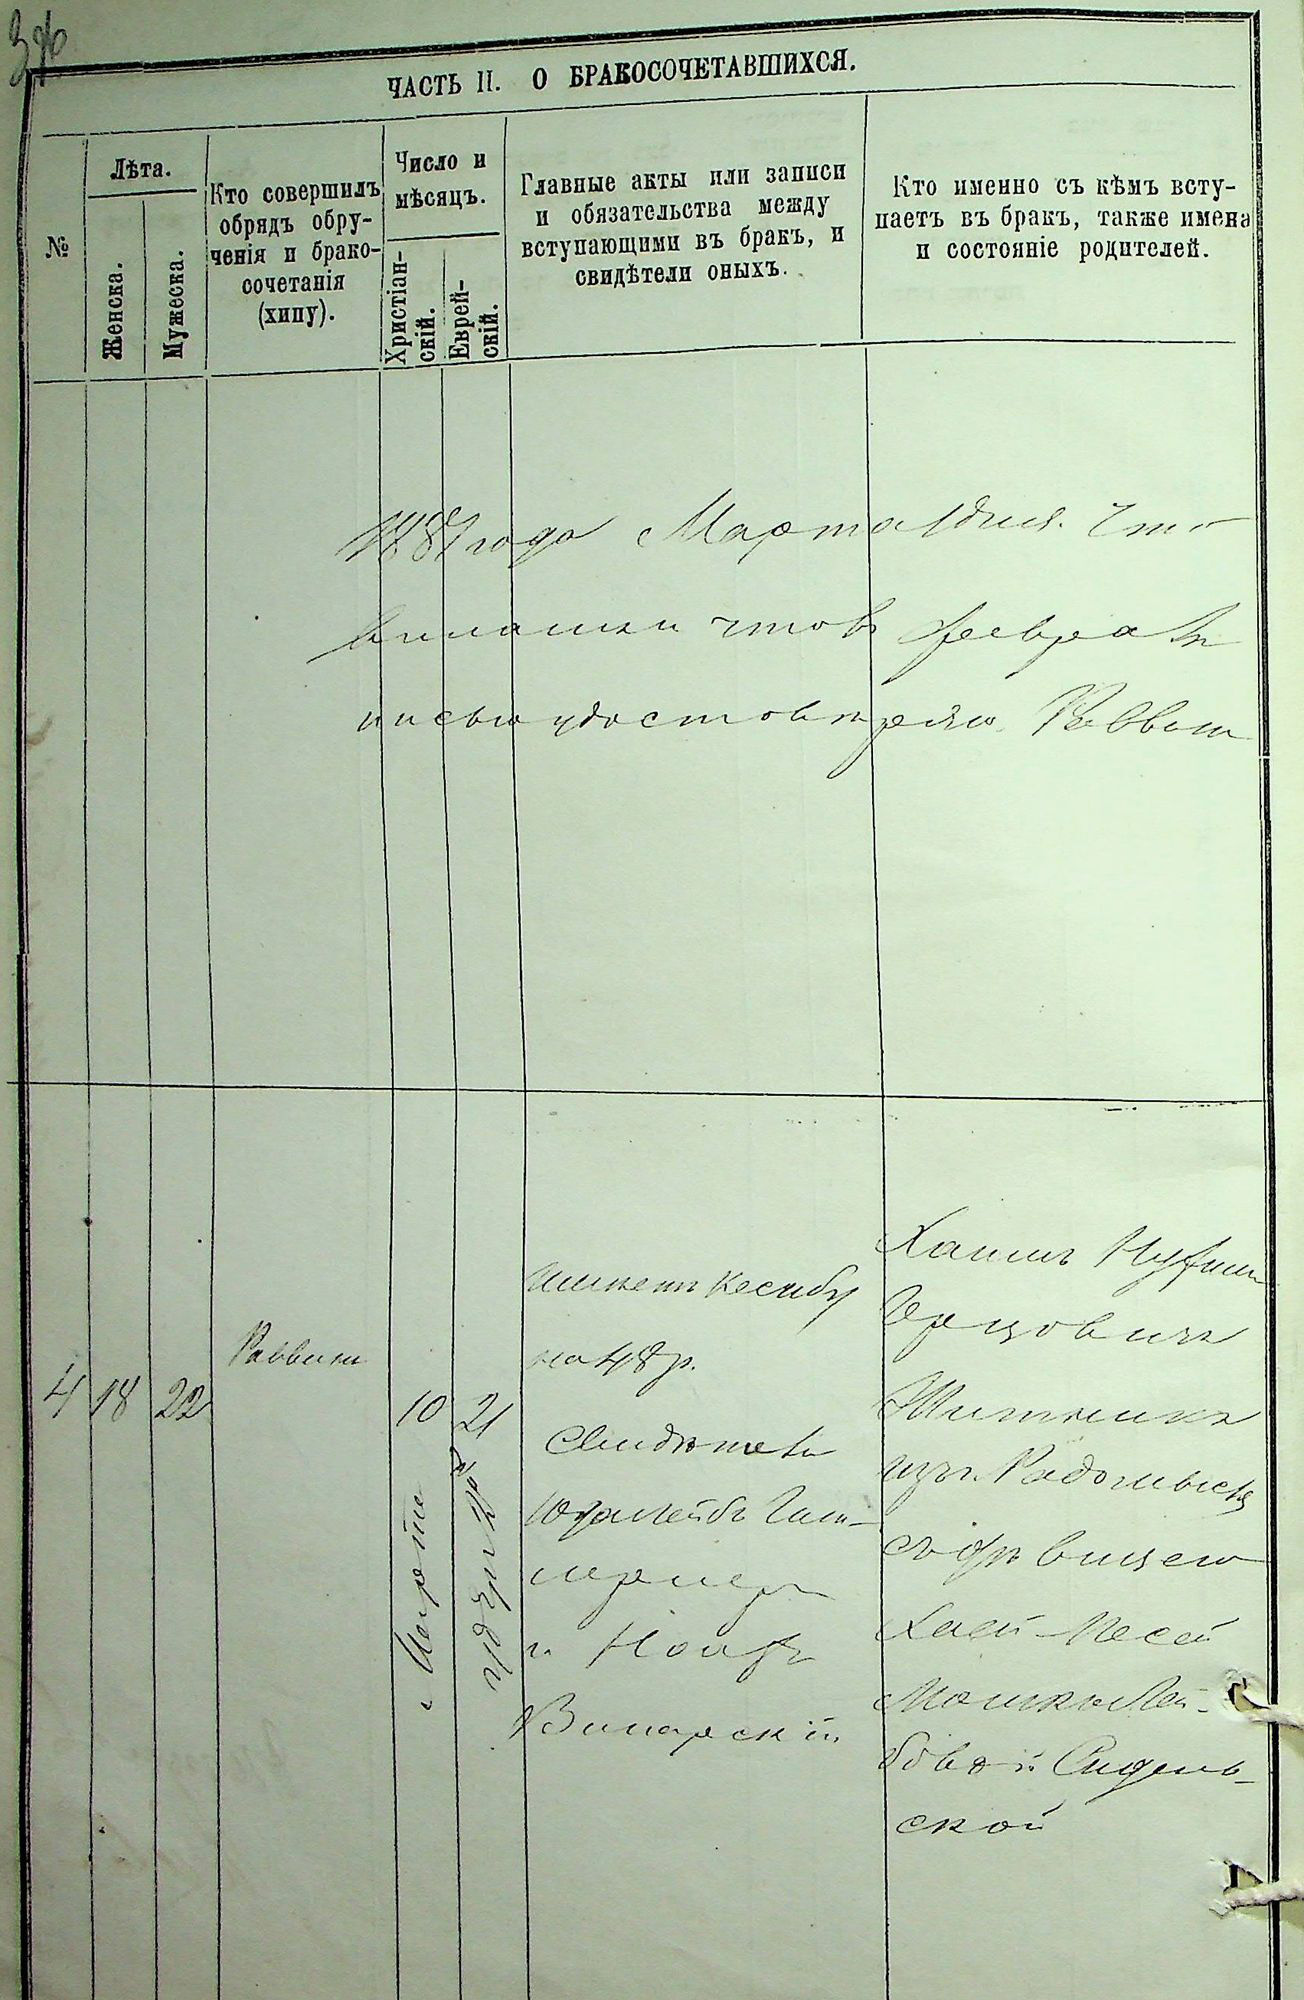 ЧАСТЬ II. О БРАКОСОЧЕТАВШИХСЯ.
№
Лѣта.
Женска.
Мужеска.
Кто совершилъ
обрядъ обру-
ченія и брако-
сочетанія
(хипу).
Число и
мѣсяцъ.
Христіан-
скій.
Еврей-
скій.
Главные акты или записи
и обязательства между
вступающими въ бракъ, и
свидѣтели оныхъ.
Кто именно съ кѣмъ всту-
паетъ въ бракъ, также имена
и состояніе родителей.
1887 года Марта 1 дня. Что
что въ феврал
писью удостовѣряю. Раввин
4
18
22
Раввинъ
10
Марта
21
на 48 р.
Свидѣтели
и Ноахъ
Винарскій
Хаимъ
Герцовичъ
Житникъ
изъ Радомысля
съ дѣвицею
Хаей-Песей
Мошко Лей-
бовой
ской